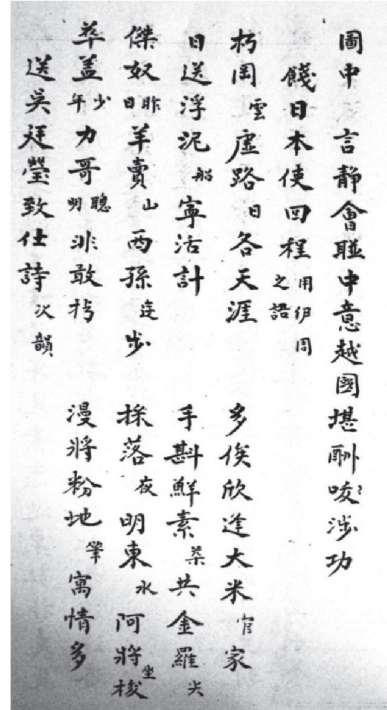 圖中　言靜會聼中意越國堪酬咬〻涉功
餞日本使回程用伊周之語
朽罔雲虛路日各天涯　多俟欣逢大米官家
日送浮泥船寧沽計　手斟鮮素菜共金羅尖
傑奴昨日羊賣山西孫迻步　採落夜明東水阿將坐梭
萃盖少午力哥聰明非敢　漫將粉地筆寓情多
送吳廷瑩致仕詩次韻